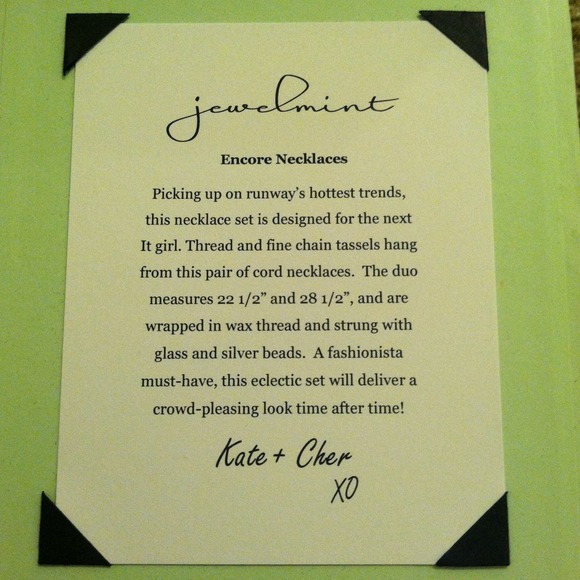 jewelmint
Encore Necklaces
Picking up on runway's hottest trends,
this necklace set is designed for the next
It girl. Thread and fine chain tassels hang
from this pair of cord necklaces.  The duo
measures 22 1/2” and 28 1/2”, and are
wrapped in wax thread and strung with
glass and silver beads.  A fashionista
must-have, this eclectic set will deliver a
crowd-pleasing look time after time!
Kate + Cher
XO